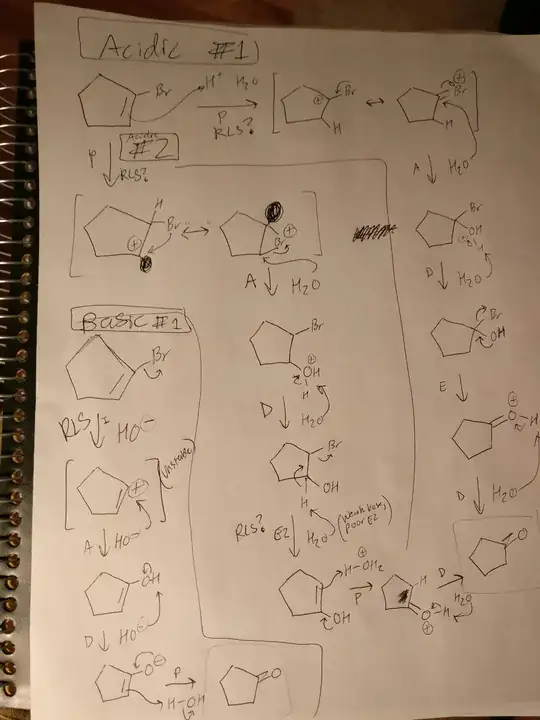 Acidic #1
Br H⁺ H₂O
P
RLS?
⊕ Br ↔ ⊕ Br
H H
Acidic
#2
P
RLS?
A H₂O
H
Br
⊕ ↔ ⊕
Br
A H₂O
Br
OH
H
D H₂O
Basic #1
Br
RLS I HO⊖
⊕ (Unstable)
A HO⊖
OH
D HO⊖
O⊖ P
H-OH
O
Br
⊕
OH
H
D H₂O
Br
OH
H
RLS? E2 H₂O (weak base, poor E2)
OH
H-OH₂ ⊕
P
H
O-H
⊕
D
H₂O
Br
OH
E
⊕
O-H
D H₂O
O